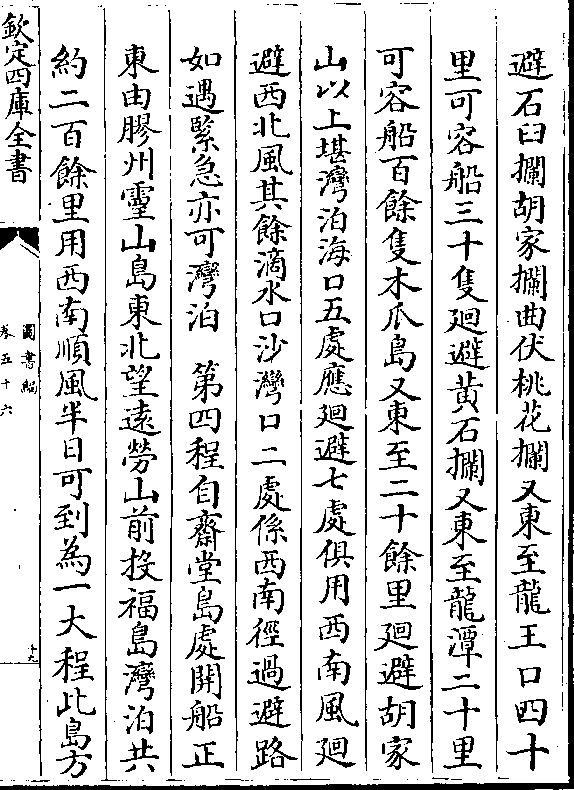 避石臼攔胡家攔曲伏桃花攔又東至龍王口四十
里可容船三十隻廻避黄石攔又東至龍潭二十里
可容船百餘隻木瓜島又東至二十餘里廻避胡家
山以上堪灣泊海口五處應廻避七處俱用西南風廻
避西北風其餘滴水口沙灣口二處係西南徑過避路
如遇緊急亦可灣泊　第四程自齋堂島處開船正
東由膠州靈山島東北望遠勞山前投福島灣泊共
約二百餘里用西南順風半日可到為一大程此島方
欽定四庫全書
圖書編
卷五十六
十九